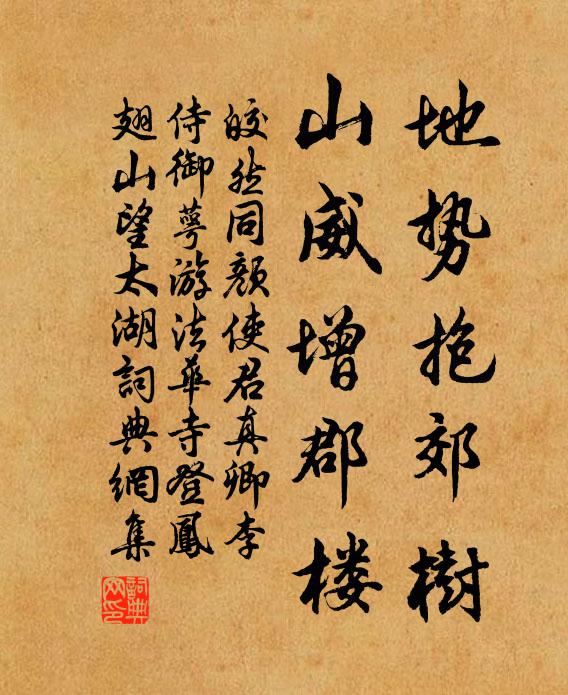 地势抱郊樹
山威增郡楼
皎然同顔使君真卿李
侍御萼游法華寺登鳳
翅山望太湖詞典網集
詞典
网印